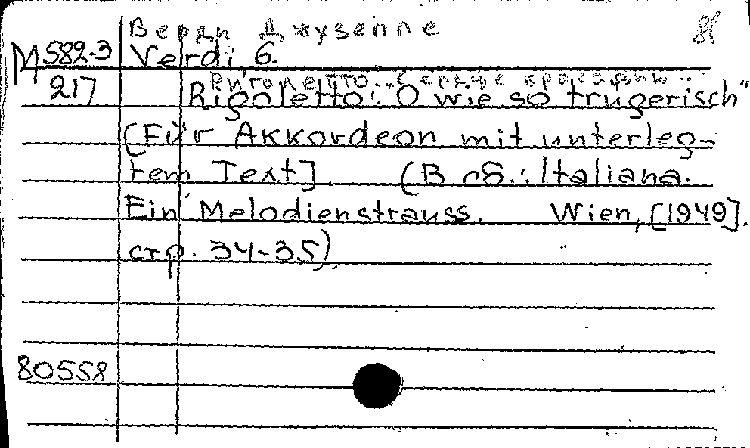 Верди Джузеппе
М 582-3 Verdi, G.
217 Rigoletto: O wie so trugerisch"
[Für Akkordeon mit unterleg-
tem Text] (В сб.: Italiana.
Ein Melodienstrauss. Wien, [1949].
стр. 34-35)
80558